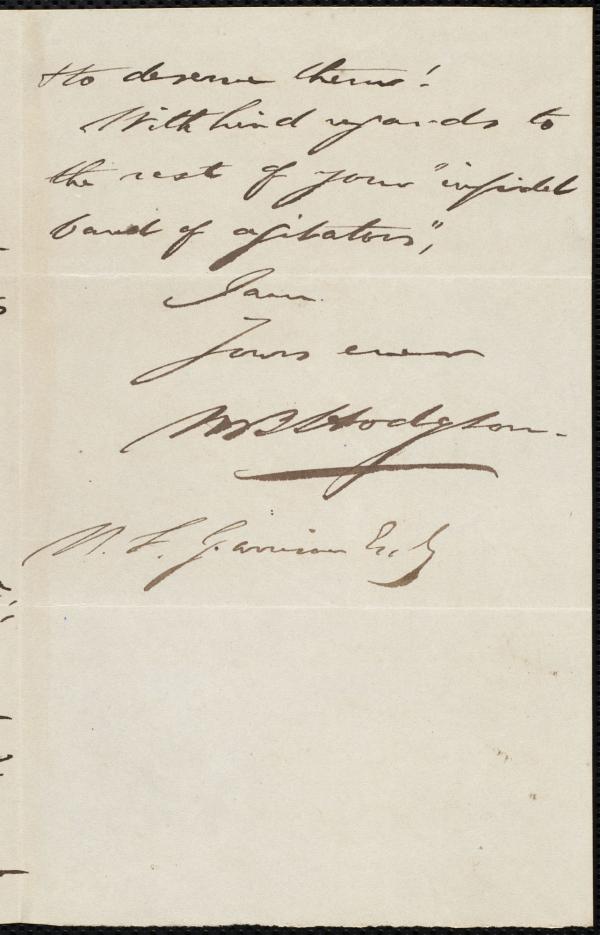 & to deserve them!
With kind regards to
the rest of your "infidel
band of agitators",
I am
Yours ever
W B Hodgson.
W. L. Garrison Esq